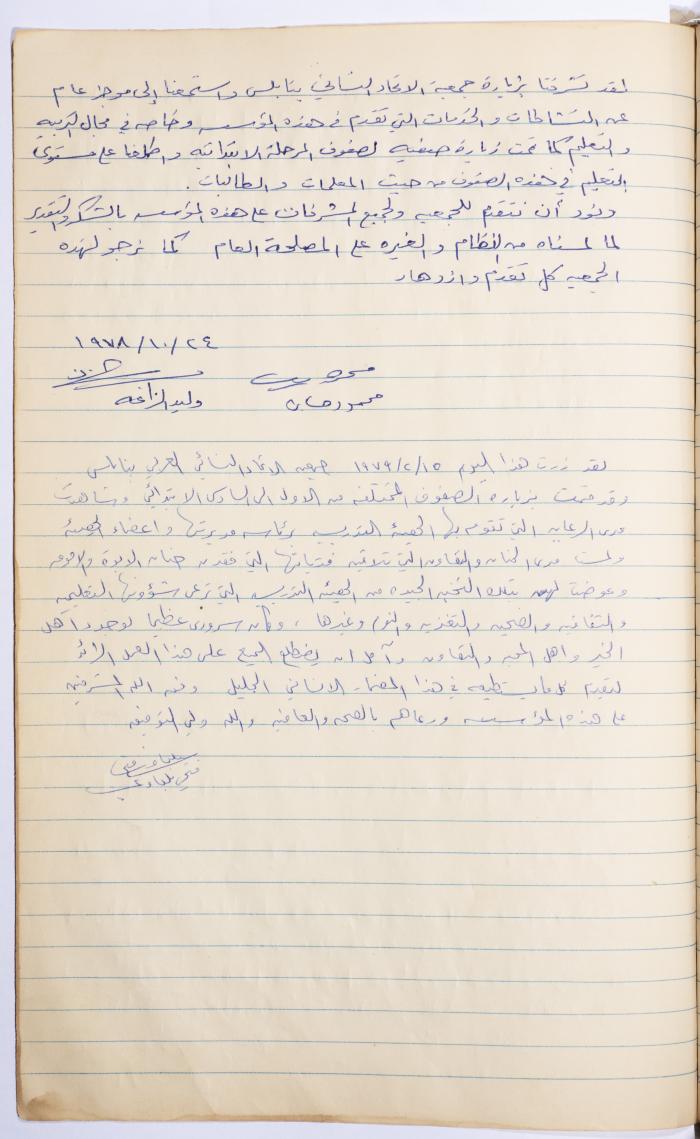 لقد تشرفنا بزيارة جمعية الاتحاد النسائي بنابلس واستمعنا إلى موجز عام
عن النشاطات والخدمات التي تقدم في هذه المؤسسه وخاصه في مجال التربيه
والتعليم كما تمت زيارة صفيه لصفوف المرحلة الابتدائيه واطلعنا على مستوى
التعليم في هذه الصفوف من حيث المعلمات والطالبات.
ونود أن نتقدم للجمعيه ولجميع المشرفات على هذه المؤسسه بالشكر والتقدير
لما لمسناه من النظام والغيره على المصلحة العام كما نرجو لهذه
الجمعيه كل تقدم وازدهار
١٩٧٨/١٠/٢٤
محمود
وليد
لقد زرت هذا اليوم ١٩٧٩/٢/١٥ جمعيه الاتحاد النسائي العربي بنابلس
وقد قمت بزياره الصفوف المختلفه من الاول الى السادس الابتدائي وشاهدت
مدى الرعايه التي تقوم بها الهيئة التدريسيه برئاسه مديرتها واعضاء الهيئة
ولمست مدى الحنان والتعاون التي تلاقيه فتياتها التي فقدن حنان الابوة والامومه
وعوضت لهن بتلك النخبه الجيده من الهيئه التدريسيه التي ترعى شؤونها التعليميه
والثقافيه والصحيه والتغذيه والنوم وغيرها ، وكان سروري عظيما لوجود اهل
الخير واهل المحبه والتعاون وآمل ان يضطلع الجميع على هذا العمل الرائد
لتقديم كل ما يستطيعه في هذا المضمار الانساني الجليل وفق الله المشرفين
على هذه المؤسسه ورعاهم بالصحه والعافيه والله ولي التوفيق
فتحي